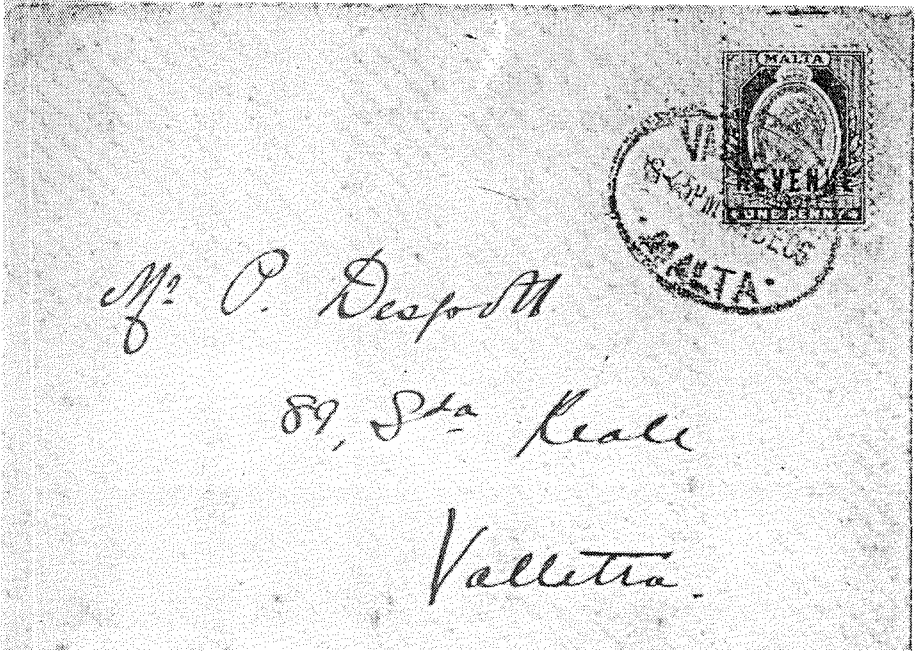 MALTA
REVENUE
ONE PENNY
VA
MALTA
Mr P. Despott
89, Sda Reale
Valletta.